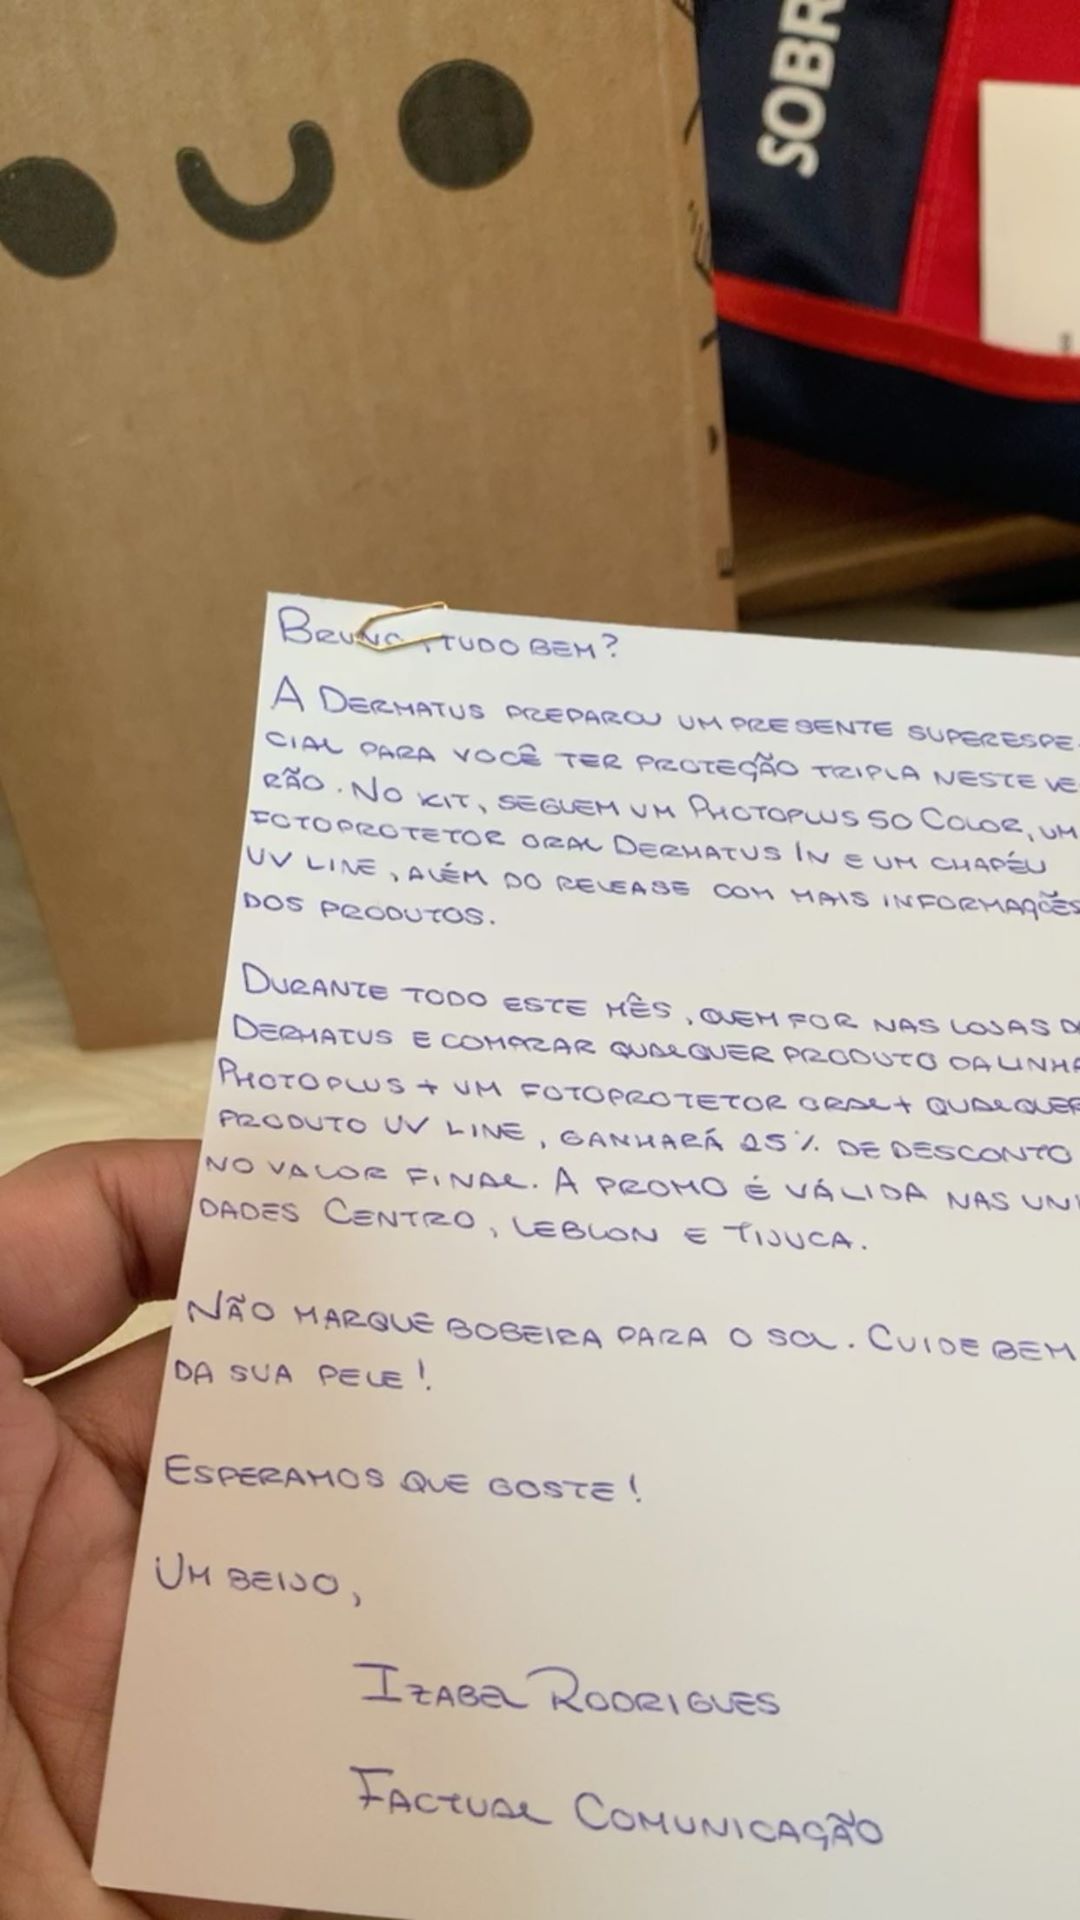 SOBR
BRUNO, TUDO BEM?
A DERMATUS PREPAROU UM PRESENTE SUPERESPE-
CIAL PARA VOCÊ TER PROTEÇÃO TRIPLA NESTE VE-
RÃO. NO KIT, SEGUEM UM PHOTOPLUS 50 COLOR, UM
FOTOPROTETOR ORAL DERMATUS IN E UM CHAPÉU
UV LINE, ALÉM DO RELEASE COM MAIS INFORMAÇÕES
DOS PRODUTOS.
DURANTE TODO ESTE MÊS, QUEM FOR NAS LOJAS DA
DERMATUS E COMPRAR QUALQUER PRODUTO DA LINHA
PHOTOPLUS + UM FOTOPROTETOR ORAL + QUALQUER
PRODUTO UV LINE, GANHARÁ 25% DE DESCONTO
NO VALOR FINAL. A PROMO É VÁLIDA NAS UNI
DADES CENTRO, LEBLON E TIJUCA.
NÃO MARQUE BOBEIRA PARA O SOL. CUIDE BEM
DA SUA PELE!
ESPERAMOS QUE GOSTE!
UM BEIJO,
IZABEL RODRIGUES
FACTUAL COMUNICAÇÃO